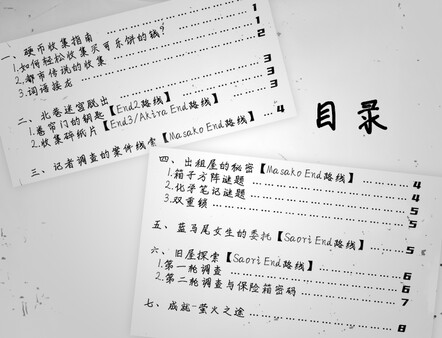 目录
一、硬币收集指南 ………… 1
1.如何轻松收集买可乐饼的钱? ………… 1
2.都市传说的收集 ………… 2
3.词语接龙
二、北巷迷宫脱出 ………… 3
1.卷帘门的钥匙【End2路线】 ………… 3
2.收集碎纸片【End3/Akira End路线】 ………… 3
三、记者调查的案件线索【Masako End路线】 ………… 4
四、出租屋的秘密【Masako End路线】 ………… 4
1.箱子方阵谜题 ………… 4
2.化学笔记谜题 ………… 5
3.双重锁 ………… 5
五、蓝马尾女生的委托【Saori End路线】 ………… 5
六、旧屋探索【Saori End路线】 ………… 6
1.第一轮调查 ………… 6
2.第二轮调查与保险箱密码 ………… 7
七、成就-萤火之途 ………… 8